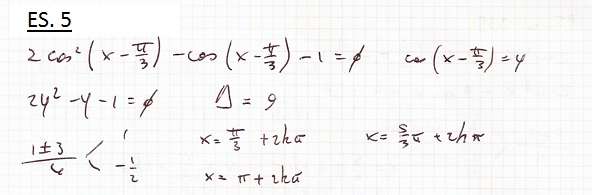 ES. 5
2 cos²(x - π/3) - cos(x - π/3) - 1 = ø cos(x - π/3) = y
2y² - y - 1 = ø Δ = 9
(1 ± 3)/4 < 1 x = π/3 + 2kπ x = 5/3 π + 2kπ
-1/2 x = π + 2kπ